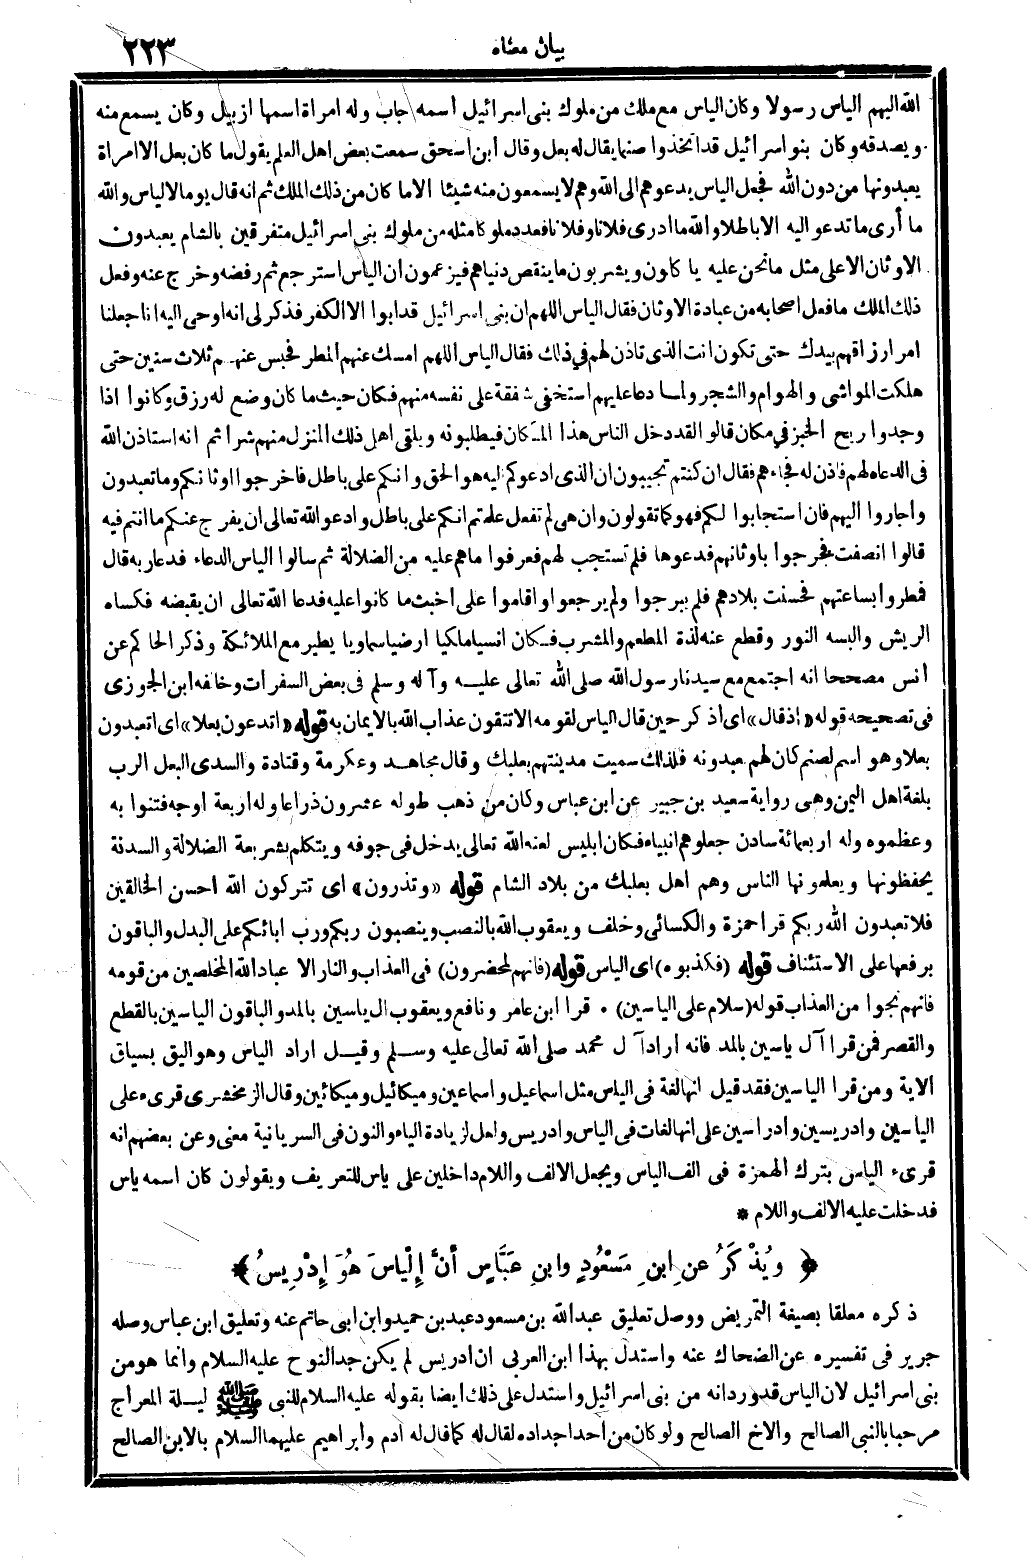 بيان معناه
٢٢٣
الله اليهم الياس رسولا وكان الياس مع ملك من ملوك بنى اسرائيل اسمه جاب وله امرأة اسمها ازبيل وكان يسمع منه
ويصدقه وكان بنو اسرائيل قد اتخذوا صنما يقال له بعل وقال ابن اسحق سمعت بعض اهل العلم يقول ما كان بعل الا امرأة
يعبدونها من دون الله فجعل الياس يدعوهم الى الله وهم لا يسمعون منه شيئا الا ما كان من ذلك الملك ثم انه قال يوما لالياس والله
ما أرى ما تدعو اليه الا باطلا والله ما ادرى فلانا وفلانا فعدد ملوكا مثله من ملوك بنى اسرائيل متفرقين بالشام يعبدون
الاوثان الا على مثل ما نحن عليه يأكلون ويشربون ما ينقص دنياهم فيزعمون ان الياس استرجع ثم رفضه وخرج عنه وفعل
ذلك الملك ما فعل اصحابه من عبادة الاوثان فقال الياس اللهم ان بنى اسرائيل قد ابوا الا الكفر فذكر لى انه اوحى اليه انا جعلنا
امر ارزاقهم بيدك حتى تكون انت الذى تاذن لهم فى ذلك فقال الياس اللهم امسك عنهم المطر فحبس عنهم ثلاث سنين حتى
هلكت المواشى والهوام والشجر ولما دعا عليهم استخفى شفقة على نفسه منهم فكان حيث ما كان وضع له رزق وكانوا اذا
وجدوا ريح الخبز فى مكان قالوا لقد دخل الناس هذا المكان فيطلبونه ويلقى اهل ذلك المنزل منهم شرا ثم انه استاذن الله
فى الدعاء لهم فاذن له فجاءهم فقال ان كنتم تجيبون ان الذى ادعوكم ليه هو الحق وانكم على باطل فاخرجوا اوثانكم وما تعبدون
واجاروا اليهم فان استجابوا لكم فهو كما تقولون وان هى لم تفعل علمتم انكم على باطل وادعو الله تعالى ان يفرج عنكم ما انتم فيه
قالوا انصفت فخرجوا باوثانهم فدعوها فلم تستجب لهم فعرفوا ما هم عليه من الضلالة ثم سالوا الياس الدعاء فدعا ربه قال
فمطروا بساعتهم فحسنت بلادهم فلم يبرحوا ولم يرجعوا واقاموا على اخبث ما كانوا عليه فدعا الله تعالى ان يقبضه فكساه
الريش والبسه النور وقطع عنه لذة المطعم والمشرب فكان انسيا ملكيا ارضيا سماويا يطير مع الملائكة وذكر الحاكم عن
أنس مصححا انه اجتمع مع سيدنا رسول الله صلى الله تعالى عليه وآله وسلم فى بعض السفرات وخالفه ابن الجوزى
فى تصحيحه قوله «اذ قال» اى اذكر حين قال الياس لقومه الا تتقون عذاب الله بالايمان به قوله «اتدعون بعلا» اى اتعبدون
بعلا وهو اسم لصنم كان لهم يعبدونه فلذلك سميت مدينتهم بعلبك وقال مجاهد وعكرمة وقتادة والسدى البعل الرب
بلغة اهل اليمن وهى رواية سعيد بن جبير عن ابن عباس وكان من ذهب طوله عشرون ذراعا وله اربعة اوجه فتنوا به
وعظموه وله اربعمائة سادن جعلوهم انبياء فكان ابليس لعنه الله تعالى يدخل فى جوفه ويتكلم بشريعة الضلالة والسدنة
يحفظونها ويعلمونها الناس وهم اهل بعلبك من بلاد الشام قوله «وتذرون» اى تتركون الله احسن الخالقين
فلا تعبدون الله ربكم قرا حمزة والكسائى وخلف ويعقوب الله بالنصب وينصبون ربكم ورب ابائكم على البدل والباقون
برفعها على الاستئناف قوله (فكذبوه) اى الياس قوله (فانهم لمحضرون) فى العذاب والنار الا عباد الله المخلصين من قومه
فانهم نجوا من العذاب قوله (سلام على الياسين) • قرا ابن عامر ونافع ويعقوب ال ياسين بالمد والباقون الياسين بالقطع
والقصر فمن قرا آل ياسين بالمد فانه اراد آل محمد صلى الله تعالى عليه وسلم وقيل اراد الياس وهو اليق بسياق
الاية ومن قرا الياسين فقد قيل انها لغة فى الياس مثل اسماعيل واسماعين وميكائيل وميكائين وقال الزمخشرى قرىء على
الياسين وادريسين وادراسين على انها لغات فى الياس وادريس ولعل لزيادة الياء والنون فى السريانية معنى وعن بعضهم انه
قرىء الياس بترك الهمزة فى الف الياس ويجعل الالف واللام داخلين على ياس للتعريف ويقولون كان اسمه ياس
فدخلت عليه الالف واللام *
﴿ ويُذْكَرُ عنِ ابنِ مَسْعُودٍ وابنِ عَبَّاسٍ أنَّ إِلْياسَ هُوَ إدْرِيسُ ﴾
ذكره معلقا بصيغة التمريض ووصل تعليق عبد الله بن مسعود عبد بن حميد وابن ابى حاتم عنه وتعليق ابن عباس وصله
جرير فى تفسيره عن الضحاك عنه واستدل بهذا ابن العربى ان ادريس لم يكن جد النوح عليه السلام وانما هو من
بنى اسرائيل لان الياس قد ورد انه من بنى اسرائيل واستدل على ذلك ايضا بقوله عليه السلام للنبى ﷺ ليلة المعراج
مرحبا بالنبى الصالح والاخ الصالح ولو كان من أحد اجداده لقال له كما قال له ادم وابراهيم عليهما السلام بالابن الصالح